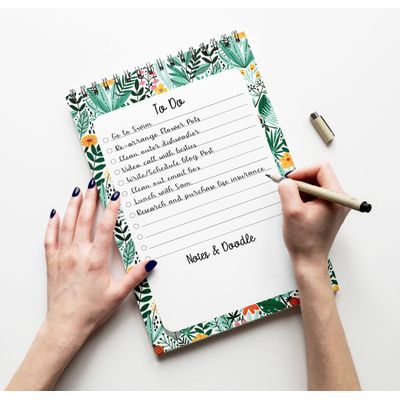 To Do
Go to Swim
Re-arrange Flower Pots
Clean outer dishwasher
Video call with besties
Write/Schedule blog Post
Clean out email box
Lunch with Sam
Research and purchase life insurance
Notes & Doodle